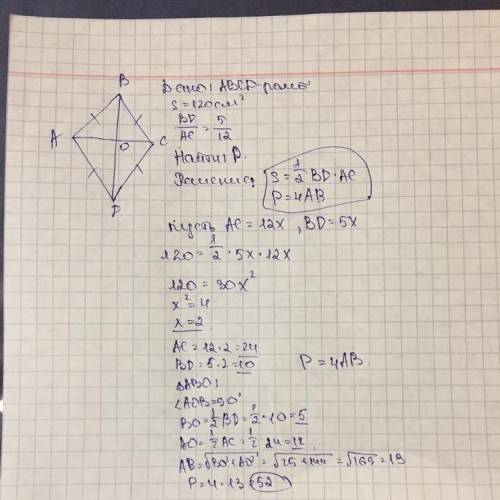 B
Дано: ABCD - ромб
S = 120 см²
BD/AC = 5/12
A
O
C
Найти: P.
Решение:
S = 1/2 BD · AC
P = 4AB
D
Пусть AC = 12x, BD = 5x
120 = 1/2 · 5x · 12x
120 = 30x²
x² = 4
x = 2
AC = 12 · 2 = 24
BD = 5 · 2 = 10
P = 4AB
ΔABO:
∠AOB = 90°
BO = 1/2 BD = 1/2 · 10 = 5
AO = 1/2 AC = 1/2 · 24 = 12
AB = √BO² + AO² = √25 + 144 = √169 = 13
P = 4 · 13 = 52